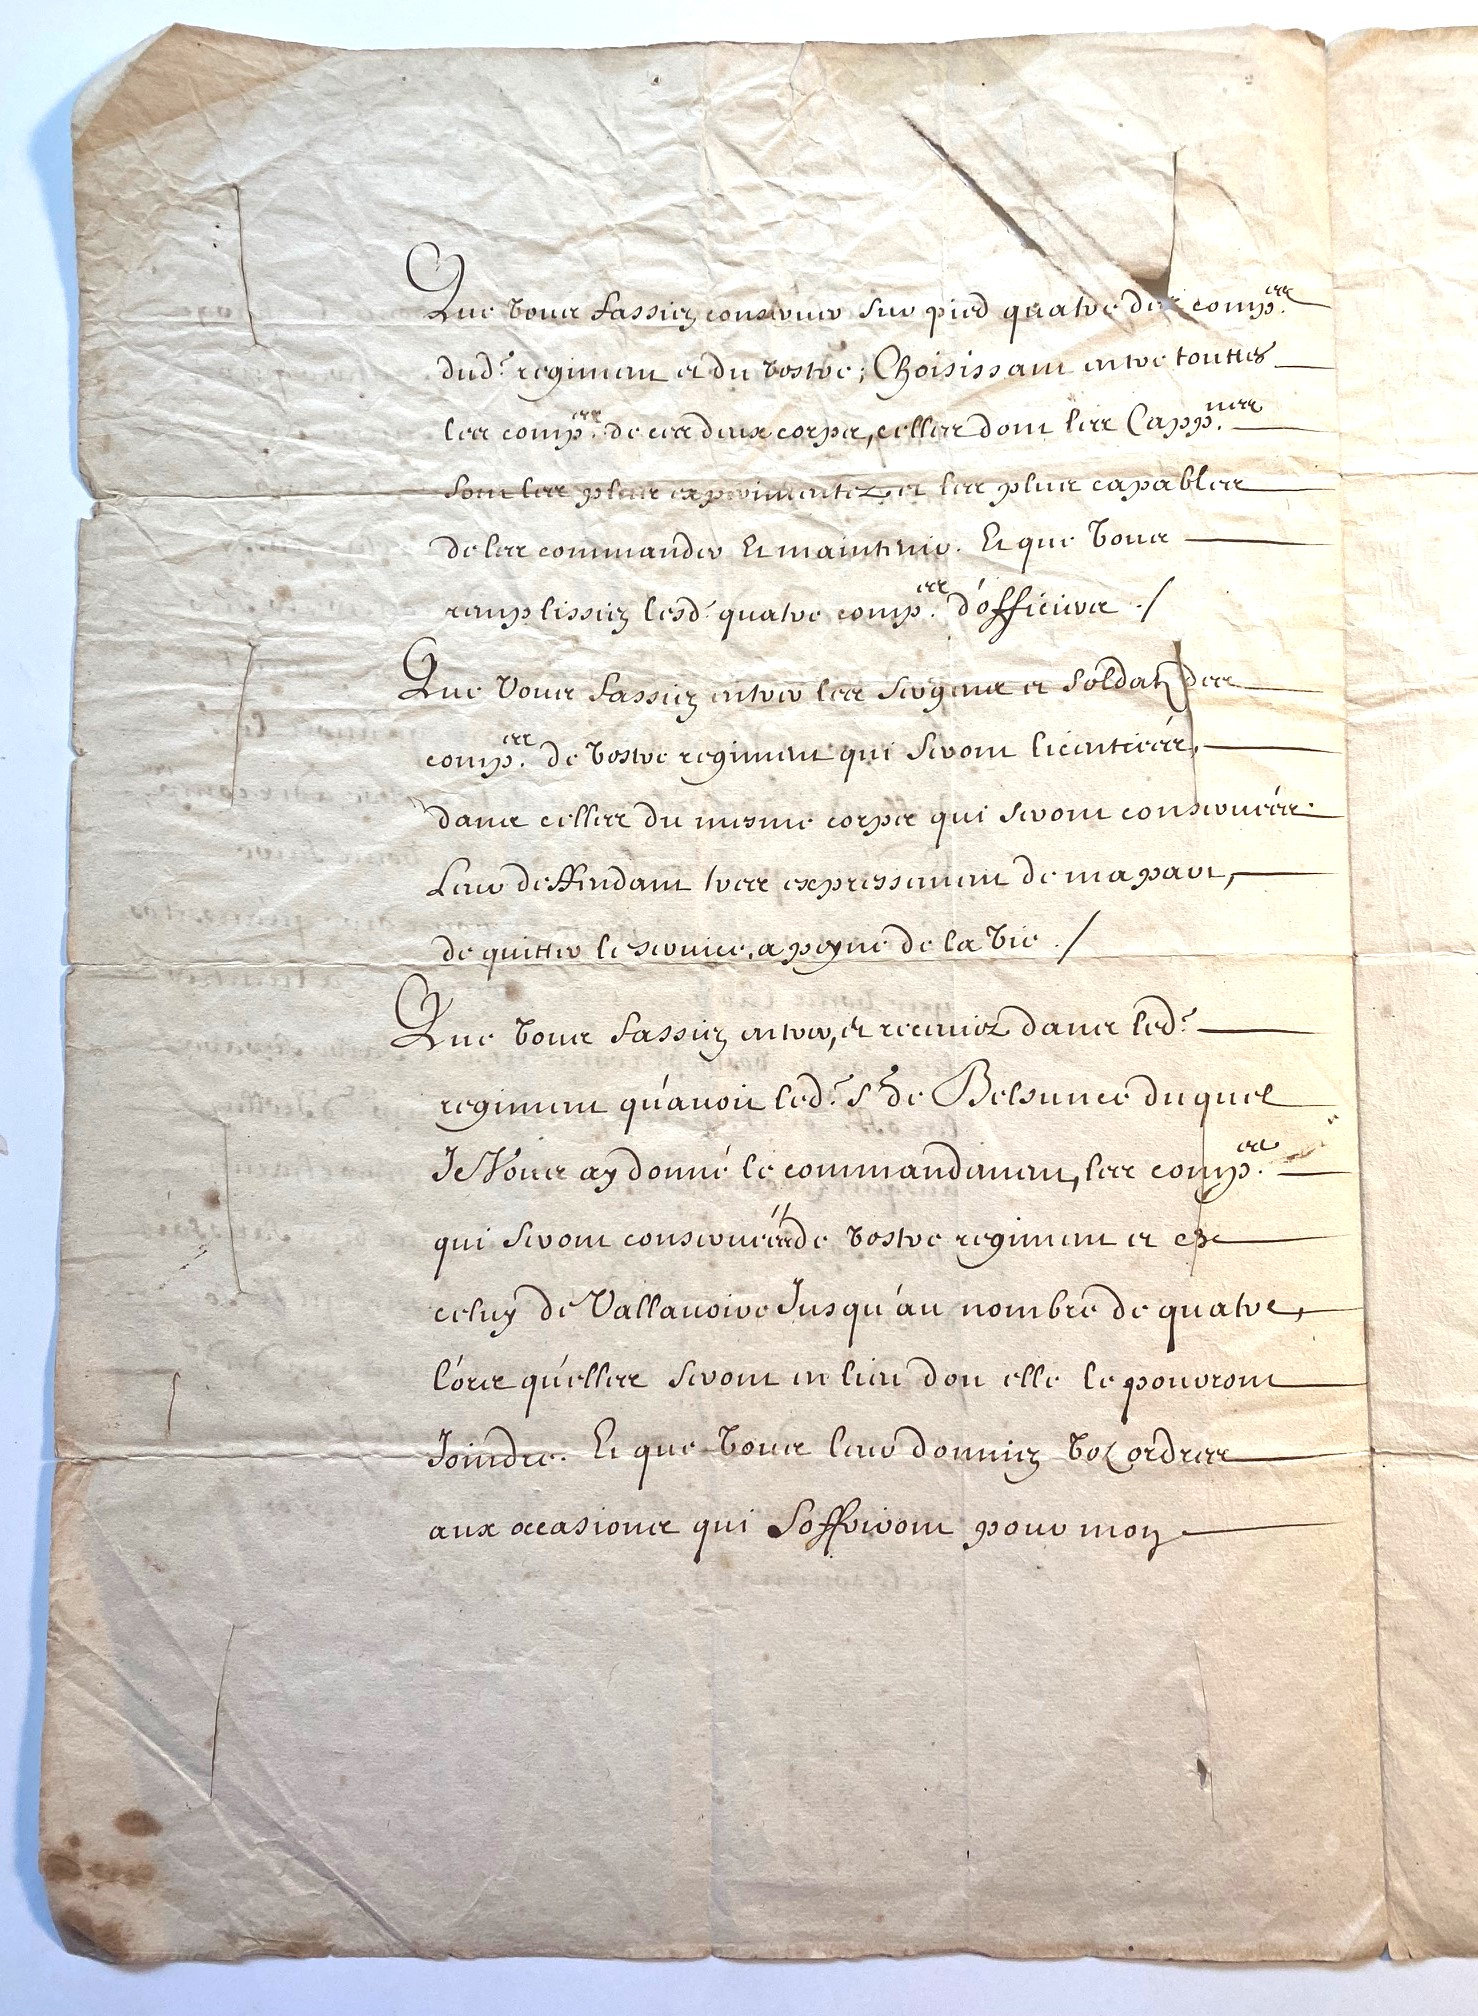 Que vous fassiez conserver sur pied quatre des comp.es
dud.t regiment et du vostre; Choisissant entre touttes
les comp.es de ces deux corps, celles dont les Capp.nes
sont les plus experimentez et les plus capables
de les commander Et maintenir. Et que vous
remplissiez lesd. quatre comp.es d'officiers ./
Que vous fassiez entrer les sergens et soldatz des
comp.es de vostre regiment qui seront licentiées,
dans celles du mesme corps qui seront conseruées
Leur deffendant tres expressement de ma part,
de quitter le seruice, a peyne de la vie ./
Que vous fassiez entrer, et receuiez dans led.t
regiment qu'auoit led.t S.r de Belsunce duquel
Je Vous ay donné le commandement, les comp.es
qui seront conseruées de vostre regiment et de
celuy de Vallauoire Jusqu'au nombre de quatre,
lors qu'elles seront en lieu dou elle le pourront
Joindre. Et que vous leur donniez voz ordres
aux occasions qui s'offriront pour mon